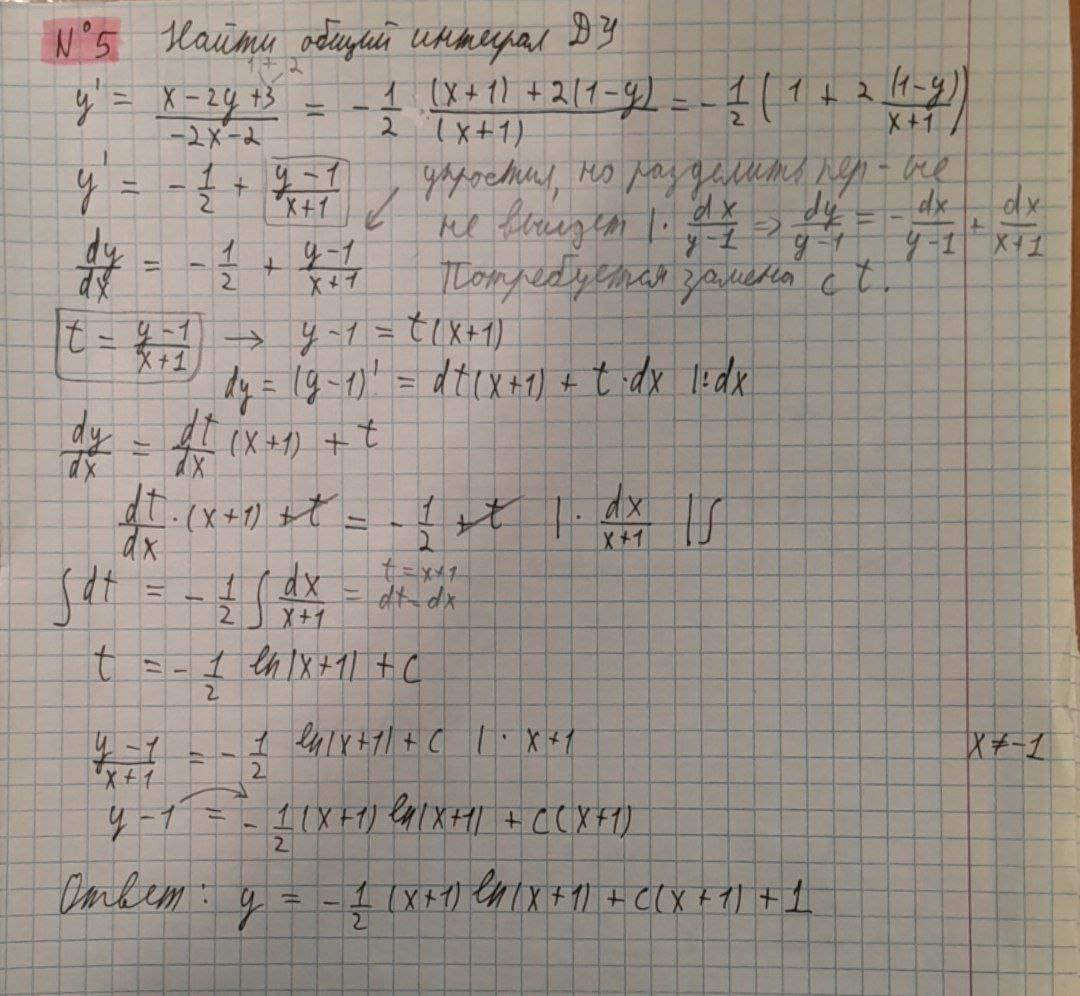 N°5 Найти общий интеграл ДУ
1+2
y' = (x-2y+3)/(-2x-2) = -1/2 · ((x+1)+2(1-y))/(x+1) = -1/2 (1 + 2 (1-y)/(x+1))
y' = -1/2 + (y-1)/(x+1) упростил, но разделить пер-ые
не выйдет |· dx/(y-1) => dy/(y-1) = -dx/(y-1) + dx/(x+1)
dy/dx = -1/2 + (y-1)/(x+1) Потребуется замена с t.
t = (y-1)/(x+1) → y-1 = t(x+1)
dy = (y-1)' = dt(x+1) + t·dx |:dx
dy/dx = dt/dx (x+1) + t
dt/dx · (x+1) + t = -1/2 + t |· dx/(x+1) |∫
∫dt = -1/2 ∫ dx/(x+1) = t=x+1
dt=dx
t = -1/2 ln|x+1| + C
(y-1)/(x+1) = -1/2 ln|x+1| + C |· x+1 x≠-1
y-1 = -1/2 (x+1) ln|x+1| + C(x+1)
Ответ: y = -1/2 (x+1) ln|x+1| + C(x+1) + 1